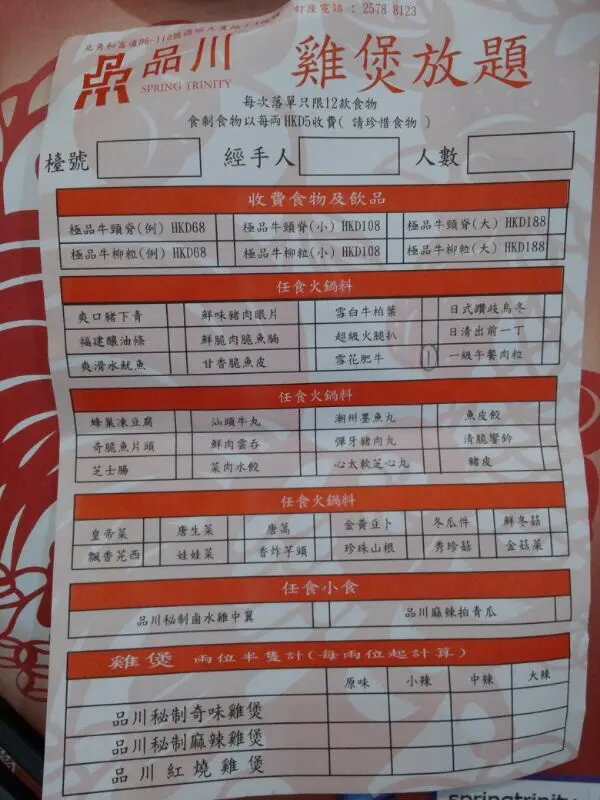 訂座電話 : 2578 8123
品川
SPRING TRINITY
雞煲放題
每次落單只限12款食物
食剩食物以每両HKD5收費( 請珍惜食物 )
檯號 經手人 人數
收費食物及飲品
極品牛頸脊(例) HKD68 極品牛頸脊(小) HKD108 極品牛頸脊(大) HKD188
極品牛柳粒(例) HKD68 極品牛柳粒(小) HKD108 極品牛柳粒(大) HKD188
任食火鍋料
爽口豬下青 鮮味豬肉眼片 雪白牛柏葉 日式讚歧烏冬
福建釀油條 鮮脆肉脆魚腩 超級火腿扒 日清出前一丁
爽滑水魷魚 甘香脆魚皮 雪花肥牛 1 一級午餐肉粒
任食火鍋料
蜂巢凍豆腐 汕頭牛丸 潮州墨魚丸 魚皮餃
奇脆魚片頭 鮮肉雲吞 彈牙豬肉丸 清脆響鈴
芝士腸 菜肉水餃 心太軟芝心丸 豬皮
任食火鍋料
皇帝菜 唐生菜 唐蒿 金黃豆卜 冬瓜件 鮮冬菇
飄香芫西 娃娃菜 香炸芋頭 珍珠山根 秀珍菇 金菇菜
任食小食
品川秘制鹵水雞中翼 品川麻辣拍青瓜
雞煲 兩位半隻計(每兩位起計算)
原味 小辣 中辣 大辣
品川秘制奇味雞煲
品川秘制麻辣雞煲
品川紅燒雞煲
springtrinity